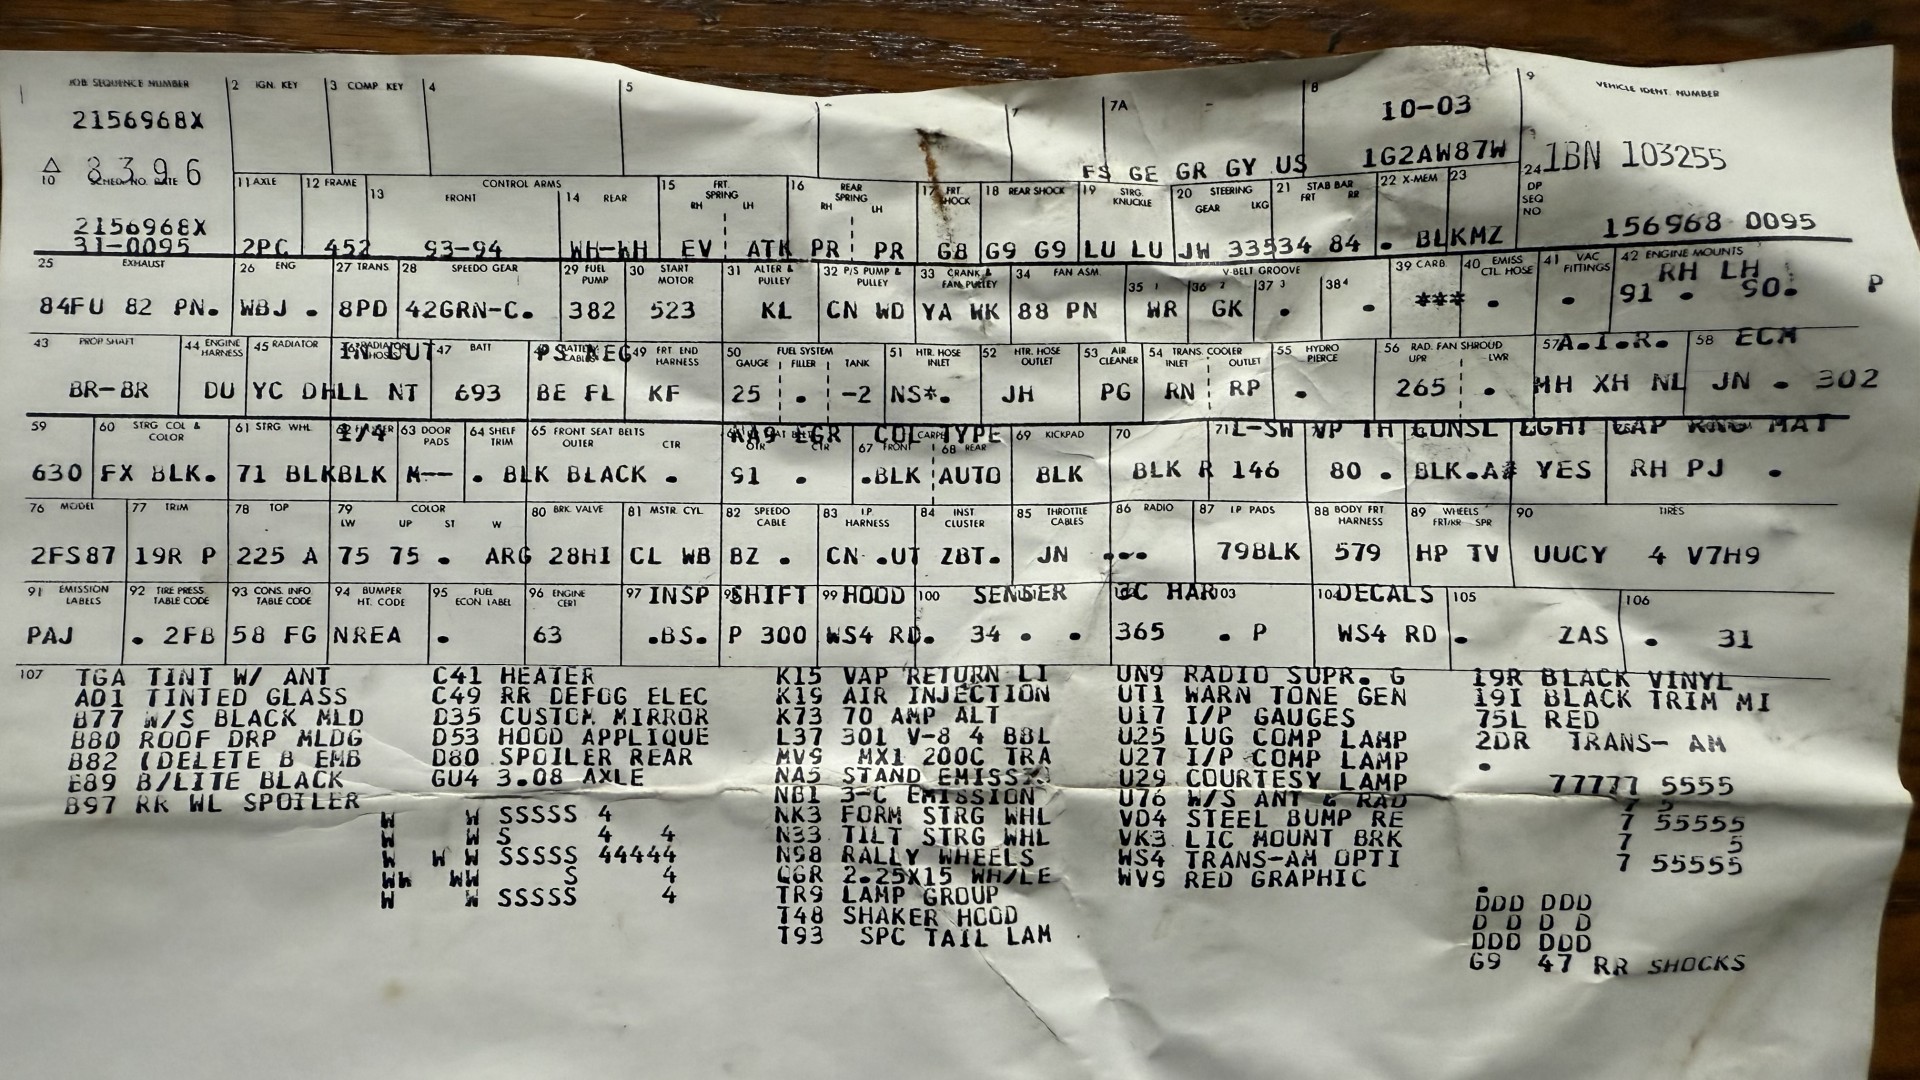 1 JOB SEQUENCE NUMBER 2 IGN. KEY 3 COMP KEY 4 5 7 7A 8 9 VEHICLE IDENT. NUMBER
2156968X 10-03
8396 FS GE GR GY US 1G2AW87W 1BN 103255
10 SCHED. NO. DATE 11 AXLE 12 FRAME 13 CONTROL ARMS FRONT 14 REAR 15 FRT. SPRING RH LH 16 REAR SPRING RH LH 17 FRT. SHOCK 18 REAR SHOCK 19 STRG. KNUCKLE 20 STEERING GEAR LKG 21 STAB BAR FRT RR 22 X-MEM 23 24 DP SEQ NO
2156968X
31-0095 2PC 452 93-94 WH-WH EV ATK PR PR G8 G9 G9 LU LU JW 33534 84 . BLKMZ 156968 0095
25 EXHAUST 26 ENG 27 TRANS 28 SPEEDO GEAR 29 FUEL PUMP 30 START MOTOR 31 ALTER & PULLEY 32 P/S PUMP & PULLEY 33 CRANK & FAN PULLEY 34 FAN ASM. V-BELT GROOVE 35 1 36 2 37 3 38 4 39 CARB. 40 EMISS CTL HOSE 41 VAC FITTINGS 42 ENGINE MOUNTS
RH LH
84FU 82 PN. WBJ . 8PD 42GRN-C. 382 523 KL CN WD YA WK 88 PN WR GK . . *** . . 91 . 90. P
43 PROP SHAFT 44 ENGINE HARNESS 45 RADIATOR 46 RADIATOR HOSES IN OUT 47 BATT 48 BATTERY CABLES PS NEG 49 FRT END HARNESS 50 FUEL SYSTEM GAUGE FILLER TANK 51 HTR. HOSE INLET 52 HTR. HOSE OUTLET 53 AIR CLEANER 54 TRANS. COOLER INLET OUTLET 55 HYDRO PIERCE 56 RAD. FAN SHROUD UPR LWR 57 A.I.R. 58 ECM
BR-BR DU YC DHLL NT 693 BE FL KF 25 . -2 NS*. JH PG RN RP . 265 . MH XH NL JN . 302
59 60 STRG COL & COLOR 61 STRG WHL 62 1/4 63 DOOR PADS 64 SHELF TRIM 65 FRONT SEAT BELTS OUTER CTR AA9 EGR COL TYPE 67 FRONT CARPET 68 REAR 69 KICKPAD 70 71 L-SW VP TH CONSL LGHT CAP RNG MAT
630 FX BLK. 71 BLKBLK M-- . BLK BLACK . 91 . .BLK AUTO BLK BLK R 146 80 . BLK.A# YES RH PJ .
76 MODEL 77 TRIM 78 TOP 79 COLOR LW UP ST W 80 BRK. VALVE 81 MSTR. CYL. 82 SPEEDO CABLE 83 I.P. HARNESS 84 INST. CLUSTER 85 THROTTLE CABLES 86 RADIO 87 I.P PADS 88 BODY FRT HARNESS 89 WHEELS FRT/RR SPR 90 TIRES
2FS87 19R P 225 A 75 75 . ARG 28HI CL WB BZ . CN .UT ZBT. JN ... 79BLK 579 HP TV UUCY 4 V7H9
91 EMISSION LABELS 92 TIRE PRESS. TABLE CODE 93 CONS. INFO TABLE CODE 94 BUMPER HT. CODE 95 FUEL ECON LABEL 96 ENGINE CERT 97 INSP 98 SHIFT 99 HOOD 100 SENSER CC HAR 103 104 DECALS 105 106
PAJ . 2FB 58 FG NREA . 63 .BS. P 300 WS4 RD. 34 . . 365 . P WS4 RD . ZAS . 31
107 TGA TINT W/ ANT C41 HEATER K15 VAP RETURN LI UN9 RADIO SUPR. G 19R BLACK VINYL
A01 TINTED GLASS C49 RR DEFOG ELEC K19 AIR INJECTION UT1 WARN TONE GEN 19I BLACK TRIM MI
B77 W/S BLACK MLD D35 CUSTOM MIRROR K73 70 AMP ALT U17 I/P GAUGES 75L RED
B80 ROOF DRP MLDG D53 HOOD APPLIQUE L37 301 V-8 4 BBL U25 LUG COMP LAMP 2DR TRANS- AM
B82 (DELETE B EMB D80 SPOILER REAR MV9 MX1 200C TRA U27 I/P COMP LAMP .
E89 B/LITE BLACK GU4 3.08 AXLE NA5 STAND EMISS U29 COURTESY LAMP 77777 5555
B97 RR WL SPOILER NB1 3-C EMISSION U76 W/S ANT & RAD 7 5
W W SSSSS 4 NK3 FORM STRG WHL V04 STEEL BUMP RE 7 55555
W W S 4 4 N33 TILT STRG WHL VK3 LIC MOUNT BRK 7 5
W W W SSSSS 44444 N98 RALLY WHEELS WS4 TRANS-AM OPTI 7 55555
WW WW S 4 QGR 2.25X15 WH/LE WV9 RED GRAPHIC
W W SSSSS 4 TR9 LAMP GROUP DDD DDD
T48 SHAKER HOOD D D D D
T93 SPC TAIL LAM DDD DDD
G9 47 RR SHOCKS